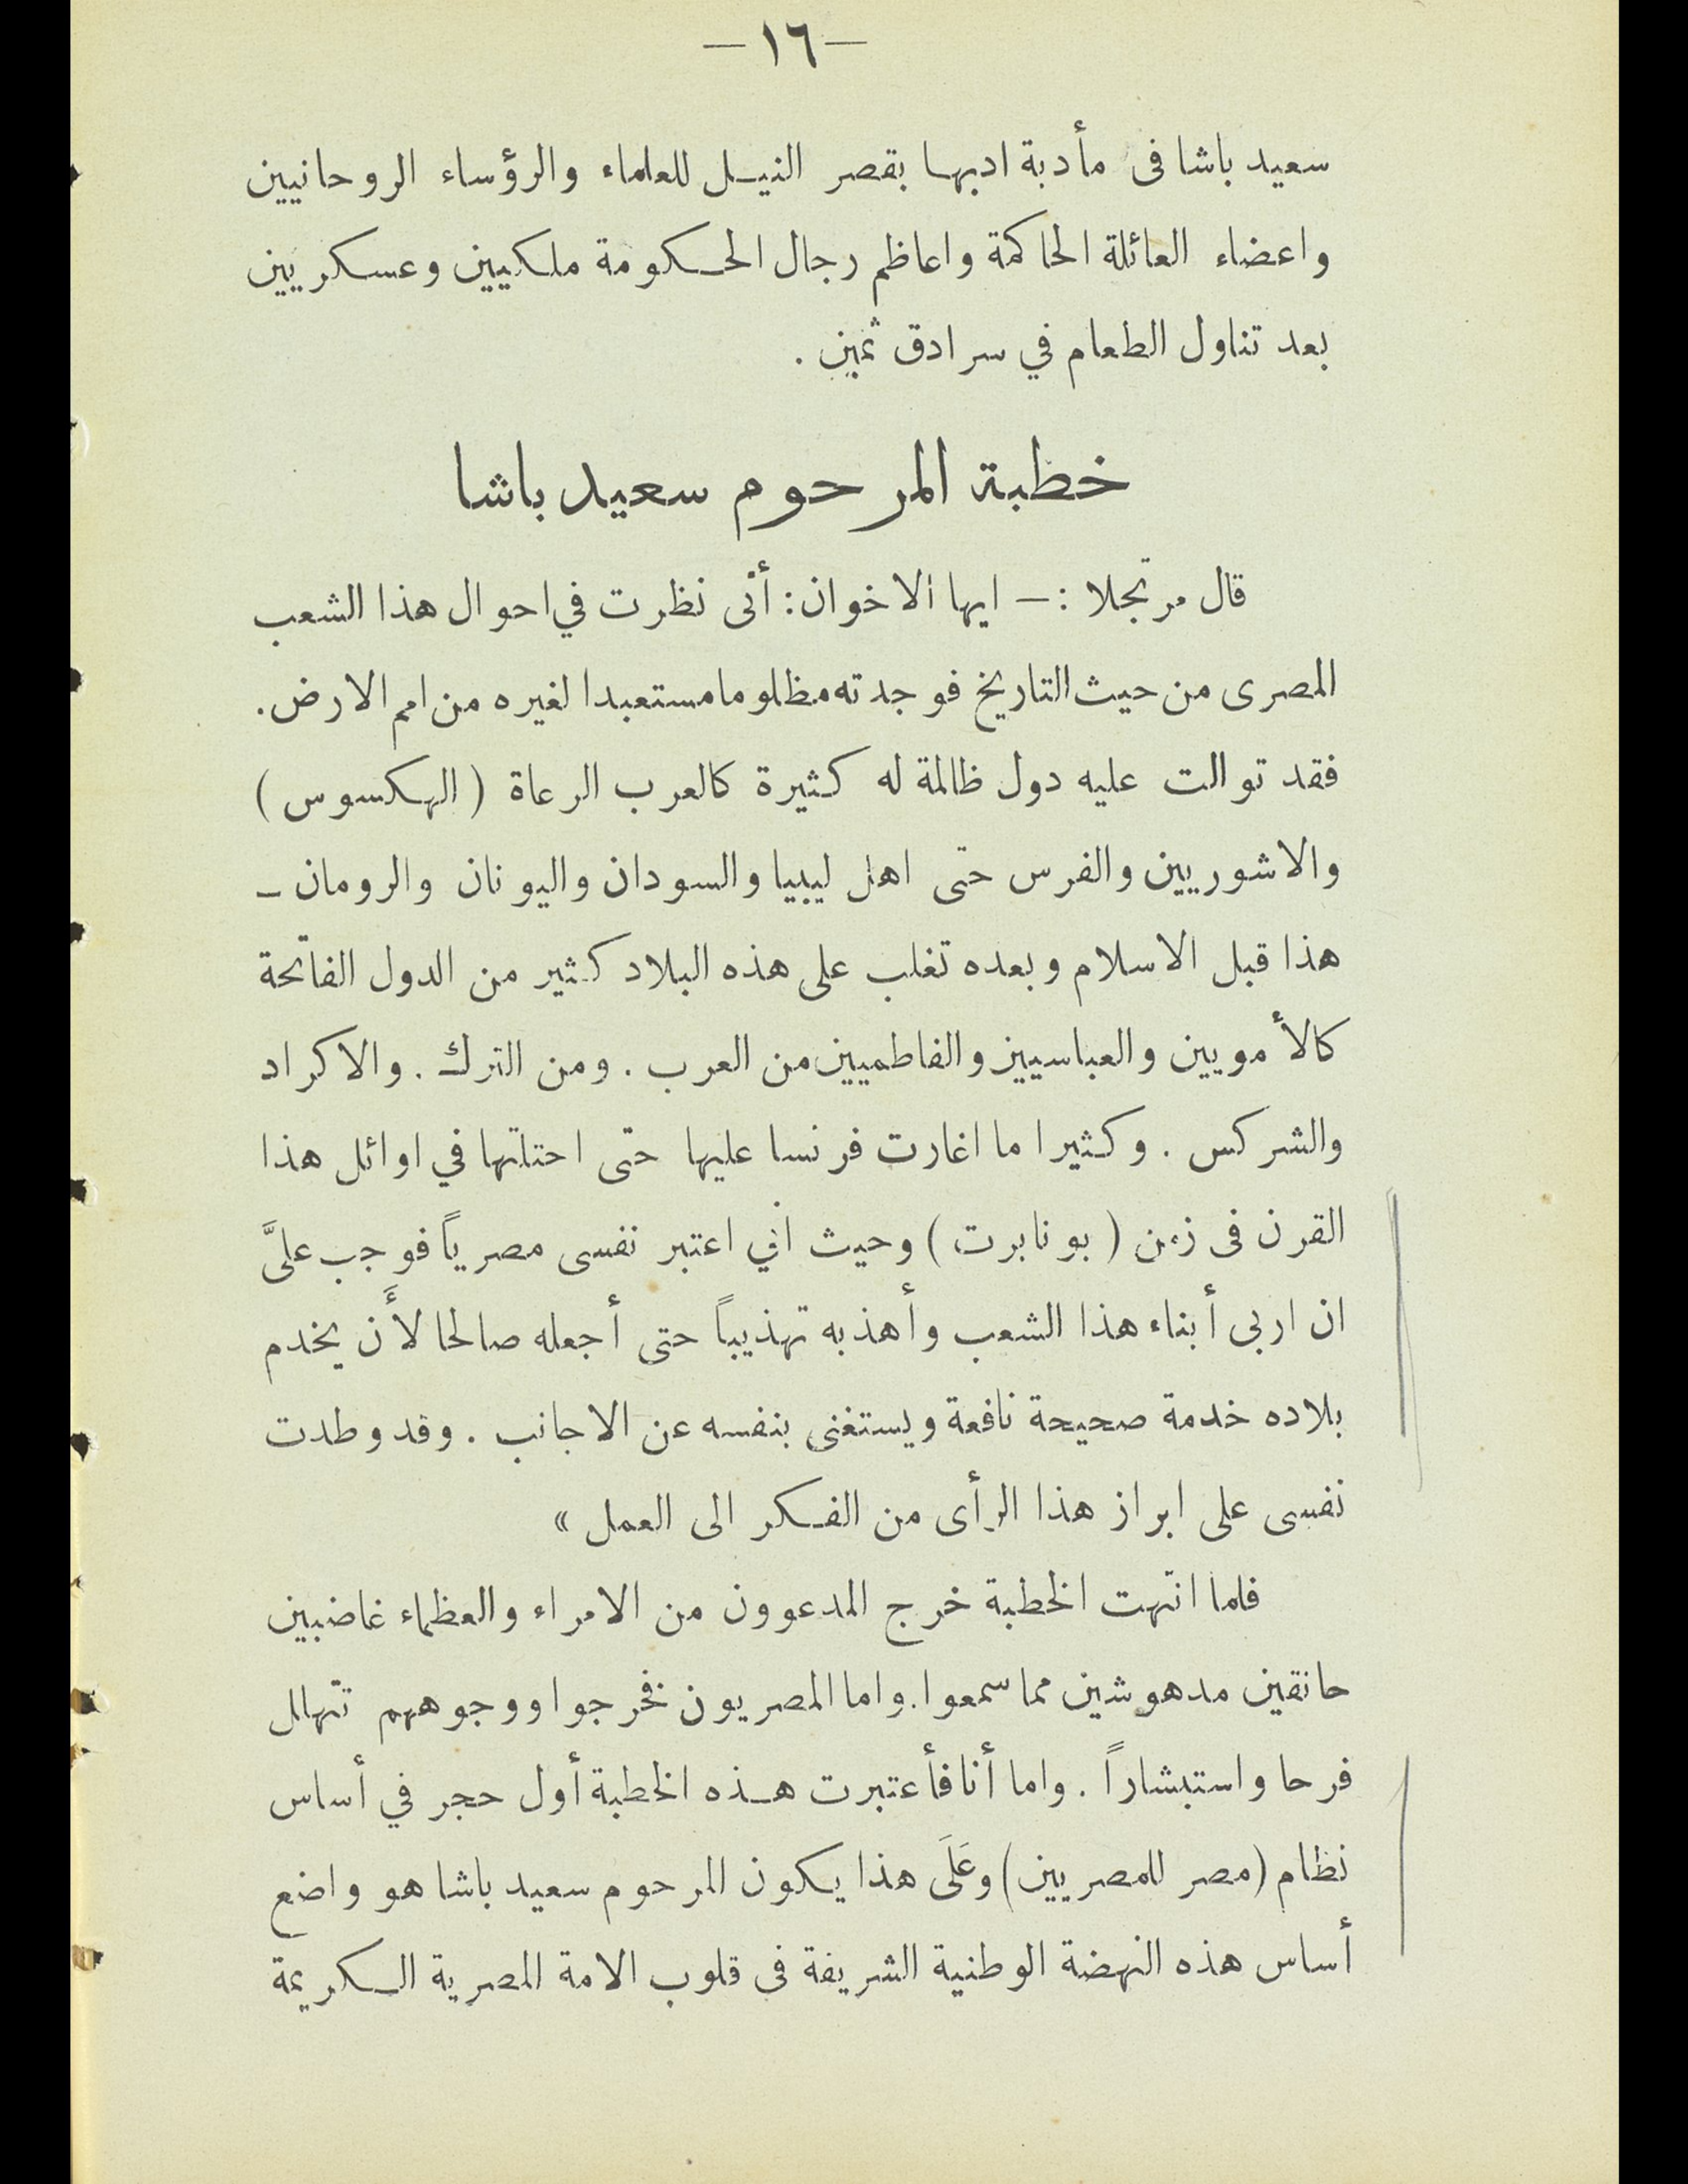 —١٦—
سعيد باشا فى مأدبة ادبها بقصر النيل للعلماء والرؤساء الروحانيين
واعضاء العائلة الحاكمة واعاظم رجال الحكومة ملكيين وعسكريين
بعد تناول الطعام في سرادق ثمين .
خطبة المرحوم سعيد باشا
قال مرتجلا :— ايها الاخوان: أنى نظرت في احوال هذا الشعب
المصرى من حيث التاريخ فوجدته مظلوما مستعبدا لغيره من امم الارض.
فقد توالت عليه دول ظالمة له كثيرة كالعرب الرعاة (الهكسوس)
والاشوريين والفرس حتى اهل ليبيا والسودان واليونان والرومان —
هذا قبل الاسلام وبعده تغلب على هذه البلاد كثير من الدول الفاتحة
كالأمويين والعباسيين والفاطميين من العرب . ومن الترك . والاكراد
والشركس . وكثيرا ما اغارت فرنسا عليها حتى احتلتها في اوائل هذا
القرن فى زمن (بونابرت) وحيث اني اعتبر نفسى مصرياً فوجب علىَّ
ان اربى أبناء هذا الشعب وأهذبه تهذيباً حتى أجعله صالحا لأَن يخدم
بلاده خدمة صحيحة نافعة ويستغنى بنفسه عن الاجانب . وقد وطدت
نفسى على ابراز هذا الرأى من الفكر الى العمل »
فلما انتهت الخطبة خرج المدعوون من الامراء والعظماء غاضبين
حانقين مدهوشين مما سمعوا. واما المصريون فخرجوا ووجوههم تتهلل
فرحا واستبشاراً . واما أنا فأعتبرت هذه الخطبة أول حجر في أساس
نظام (مصر للمصريين) وعَلَى هذا يكون المرحوم سعيد باشا هو واضع
أساس هذه النهضة الوطنية الشريفة فى قلوب الامة المصرية الكريمة